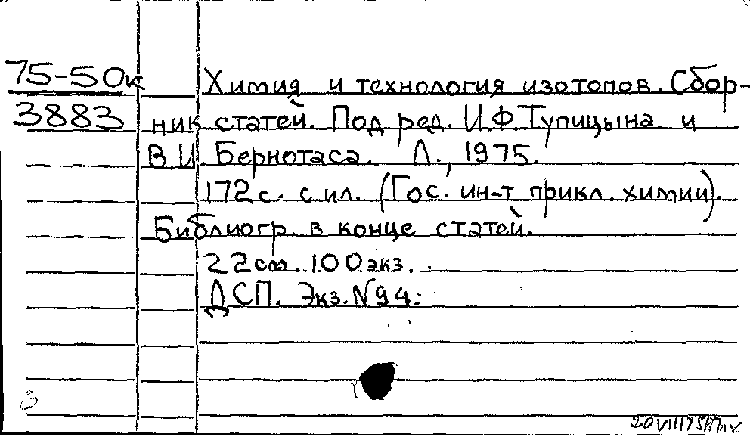 75-50к
3883
Химия и технология изотопов. Сбор-
ник статей. Под ред. И.Ф.Тупицына и
В.И. Бернотаса. Л., 1975.
172с. с ил. (Гос. ин-т прикл. химии).
Библиогр. в конце статей.
22см. 100экз.
ДСП. Экз.N94.